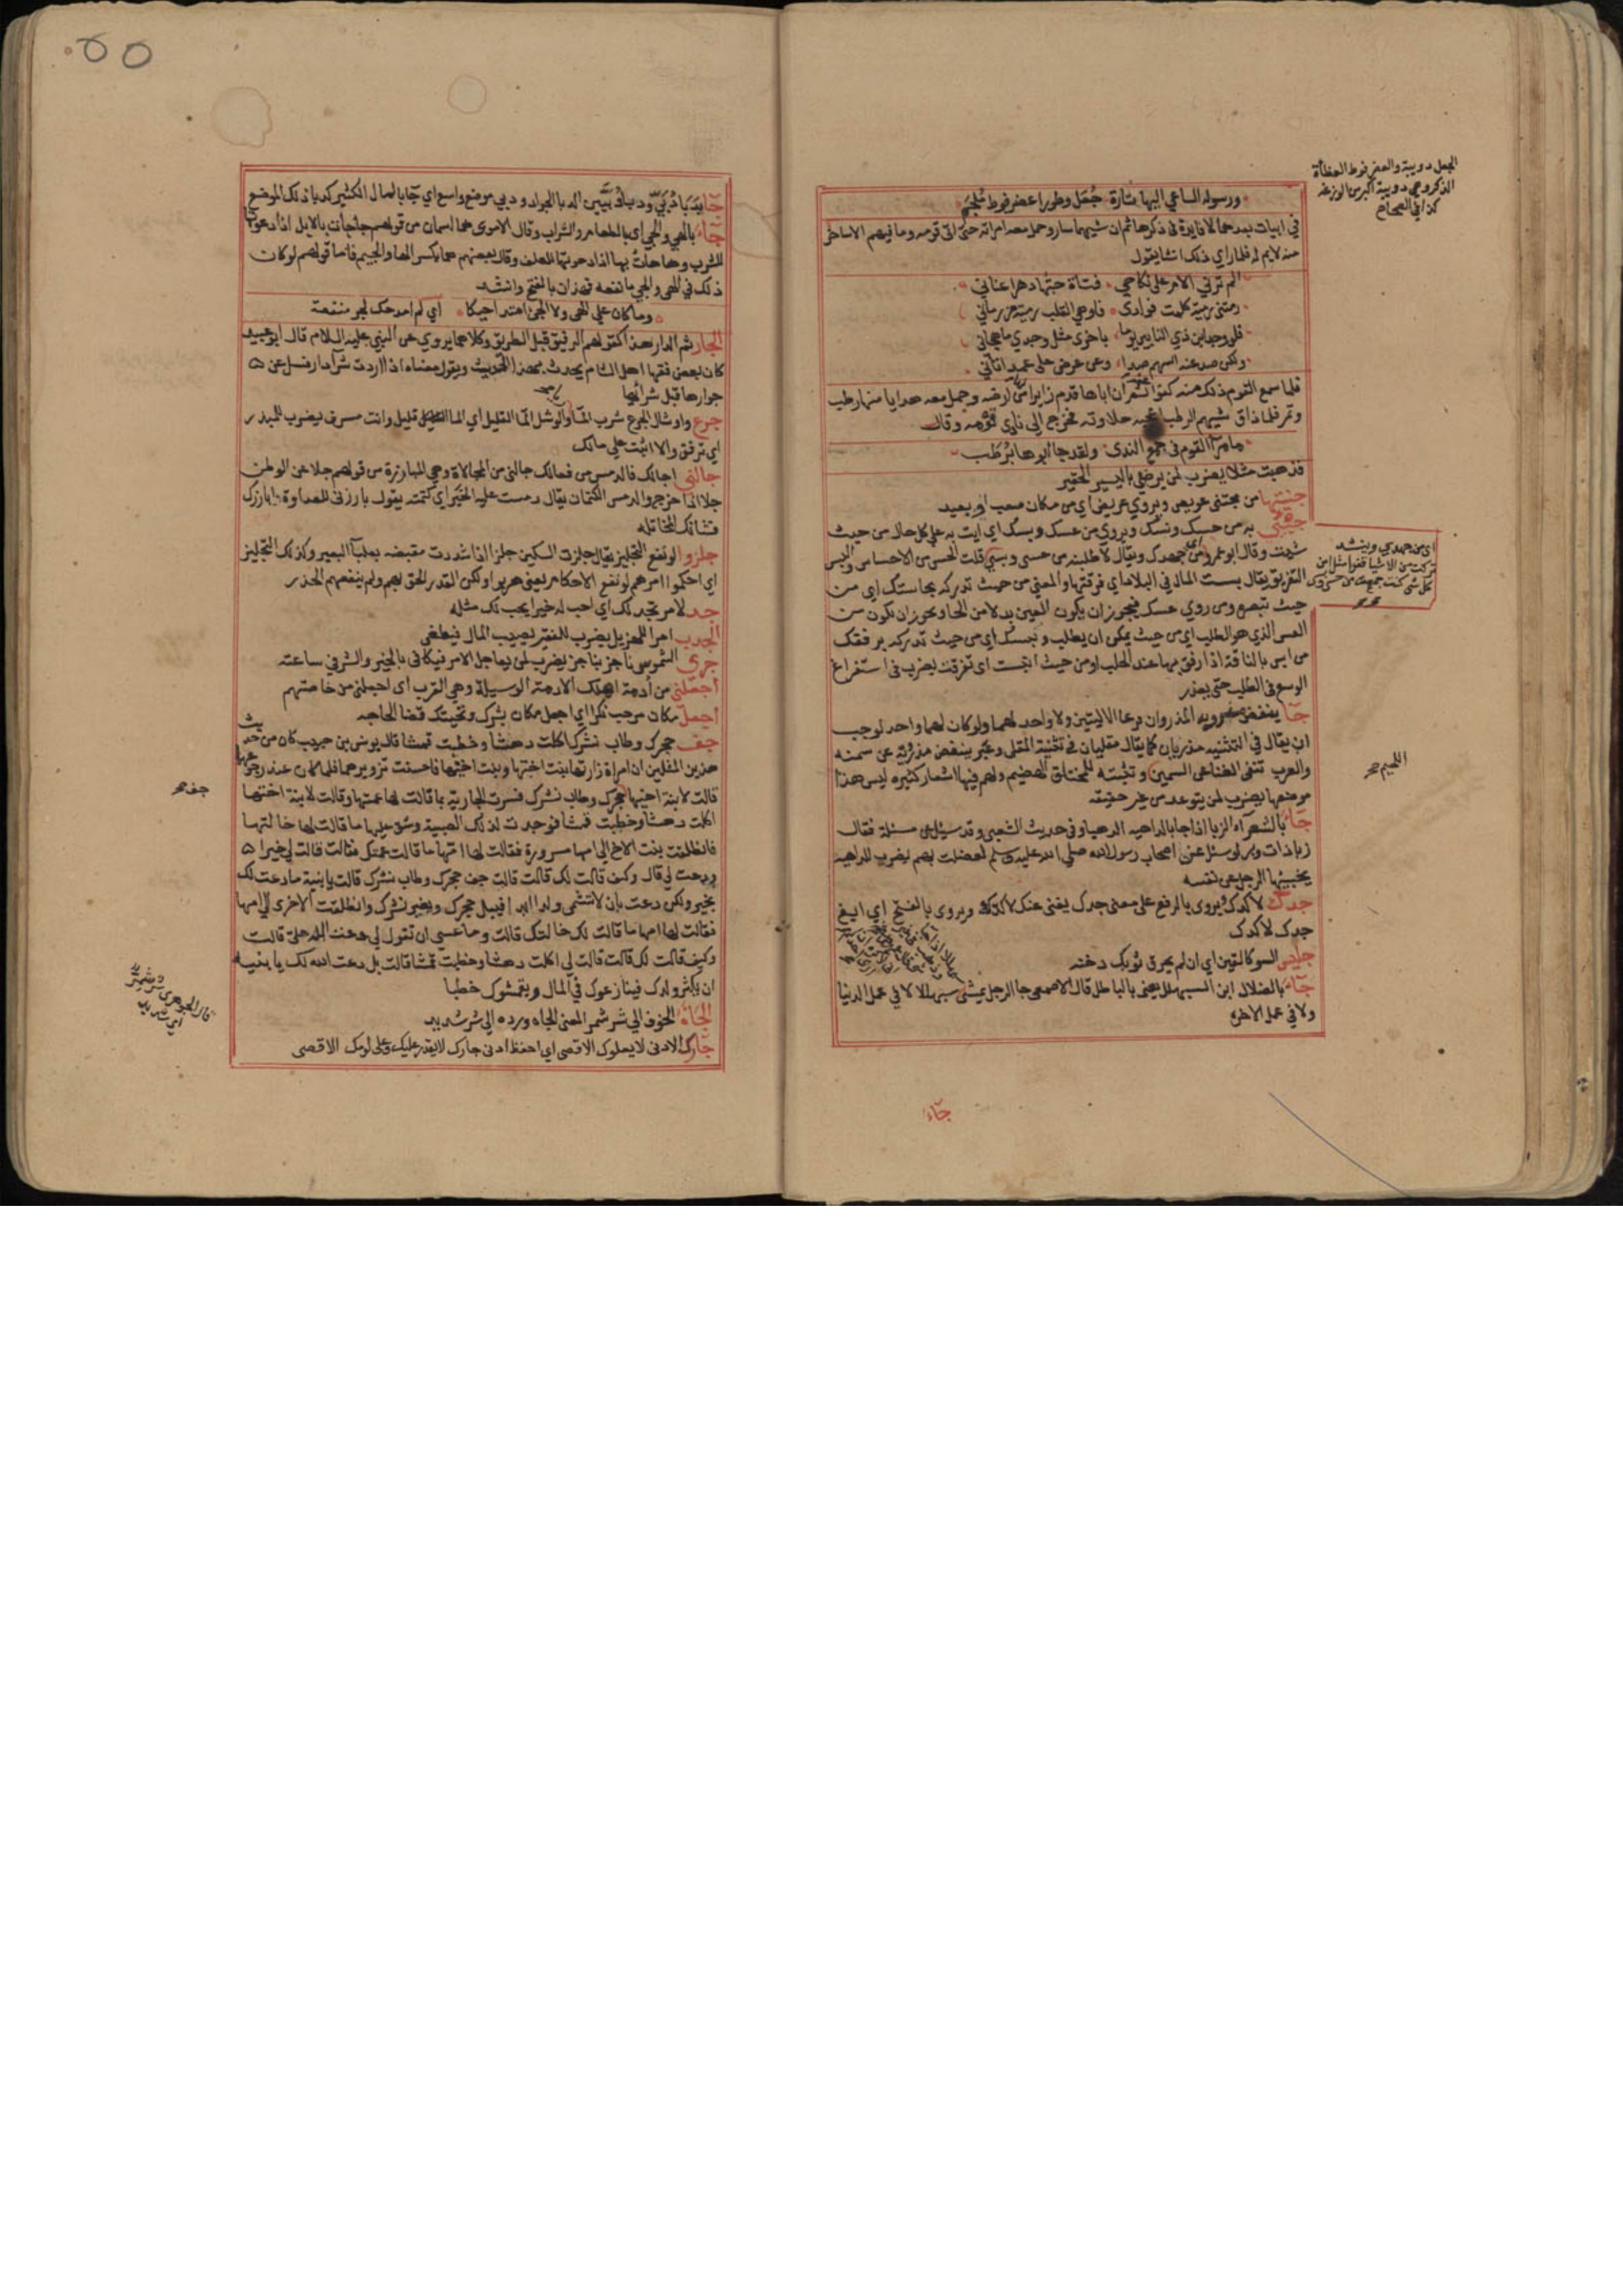 ورسوله الساعي اليها تارة جعل وطورا عضرفوط ملجم
في ابيات بعدهما لا فايدة في ذكرها ثم ان شيهما سار وحمل معه امراته حتى اتى قومه وما فيهم الا ساخر
منه لايم له فلما راي ذلك انشا يقول
الم ترني الام على نكاحي فتاة حبها دهرا عناني
رمتني رمية كلمت فوادي فاوهي القلب رمية من رماني
فلو وجد ابن ذي النابين يوما باخرى مثل وجدي ما هجاني
ولكن صد عنه السهم صدا وعن عرض على عمد اتاني
فلما سمع القوم ذلك منه كفوا ثم ان اباها قدم زايرا من ارضه وحمل معه هدايا منها رطب
وتمر فلما ذاق شيهم الرطب اعجبه حلاوته فخرج الى نادي قومه وقال
ما مرا القوم في جمع الندى ولقد جا ابوها برطب
فذهبت مثلا يضرب لمن يرضى باليسير الحقير
جنيتها من مجتنى عويص ويروي عريض اي من مكان صعب او بعيد
جيني به من حسك وبسك ويروي من عسك وبسك اي ايت به على كل حال من حيث
شيت وقال ابو عمرو اي من جهدك ويقال لاطلبنه من حسي وبسي قلت الحس من الاحساس والبس
التفريق يقال بست المال في البلاد اي فرقتها والمعنى من حيث تدركه بحاستك اي من
حيث تبصره ومن روي عسك فيجوز ان يكون العين بدلا من الحا ويجوز ان تكون من
العس الذي هو الطلب اي من حيث يمكن ان يطلب وبسك اي من حيث تدركه برفقك
من ابس بالناقة اذا رفق بها عند الحلب او من حيث انبست اي تفرقت يضرب في استفراغ
الوسع في الطلب حتى يعذر
جا ينفض مذرويه المذروان فرعا الاليتين ولا واحد لهما ولو كان لهما واحد لوجب
ان يقال في التثنيه مذريان كما يقال مقليان في تثنية المقلى وعبر بنفض مذرويه عن سمنه
والعرب تنفي الغنا عن السمين وتثبته للمختلق الهضيم ولهم فيها اشعار كثيره ليس هذا
موضعها يضرب لمن يتوعد من غير حقيقه
جاء بالشعراء الزبا اذا جا بالداهيه الدهيا وفي حديث الشعبي وقد سئل عن مسئلة فقال
زبا ذات وبر لو سئل عنها اصحاب رسول الله صلى الله عليه وسلم لعضلت بهم يضرب للداهيه
يجنيها الرجل على نفسه
جدك لا كدك يروي بالرفع على معنى جدك يغني عنك لا كدك ويروى بالفتح اي ابغ
جدك لا كدك
جليس السو كالقين اي ان لم يحرق ثوبك دخنه
جاء بالضلال ابن السبهلل يعني بالباطل قال الاصمعي جا الرجل يمشي سبهللا لا في عمل الدنيا
ولا في عمل الاخره
جاء
الجعل دويبة والعضرفوط العظاة
الذكر وهي دويبة اكبر من الوزغه
كذا في الصحاح
اي من جهدي وينشد
تركت من الاشيا قفرا مثل امس
كل شي كنت جمعت من حسي وبسي
جاء بدبا دبي ودبا دبيين الدبا الجراد ودبي موضع واسع اي جا بالمال الكثير كدبا ذلك الموضع
جاء بالهي والجي اي بالطعام والشراب وقال الاموي هما اسمان من قولهم جاجات بالابل اذا دعوتها
للشرب وهاهات بها اذا دعوتها للعلف وقال بعضهم هما بكسر الها والجيم فاما قولهم لو كان
ذلك في الهي والجي ما نفعه فهذان بالفتح وانشد
وما كان على الهي ولا الجي امتداحيكا اي لم امدحك لجر منفعة
الجار ثم الدار هذا كقولهم الرفيق قبل الطريق وكلاهما يروي عن النبي عليه السلام قال ابو عبيد
كان بعض فقها اهل الشام يحدث بهذا الحديث ويقول معناه اذا اردت شرا دار فسل عن
جوارها قبل شرائها
جرع واوشال الجرع شرب الما والوشل الما القليل اي الما قليل وانت مسرف يضرب للمبذر
اي ترفق والا اتيت على مالك
جالني اجالك فالدمس من فعالك جالني من المجالاة وهي المبارزة من قولهم جلا عن الوطن
جلا اذا خرج والدمس الكتمان يقال دمست عليه الخبر اي كتمته يقول بارزني للعداوة ابارزك
فشانك المخاتله
جلزوا لو نفع التجليز يقال جلزت السكين جلزا اذا شددت مقبضه بعلبا البعير وكذلك التجليز
اي احكموا امرهم لو نفع الاحكام يعني هربوا ولكن القدر الحق بهم ولم ينفعهم الحذر
جد لامري يجد لك اي احب له خيرا يحب لك مثله
الجدب امرا للهزيل يضرب للفقير يصيب المال فيطغى
جرى الشموس ناجز بناجز يضرب لمن يعاجل الامر فيكافي بالخير والشر في ساعته
اجعلني من أدمة اهلك الادمة الوسيلة وهي القرب اي اجعلني من خاصتهم
اجعل مكان مرحب نكرا اي اجعل مكان بشرك وتحيتك قضا الحاجه
جف حجرك وطاب نشرك اكلت دهشا وحطبت قمشا قال يونس بن حبيب كان من حديث
هذين المثلين ان امراة زارتها بنت اختها وبنت اخيها فاحسنت تزويرهما فلما كان عند رجوعهما
قالت لابنة اخيها جف حجرك وطاب نشرك فسرت الجارية بما قالت لها عمتها وقالت لابنة اختها
اكلت دهشا وحطبت قمشا فوجدت لذلك الصبية وشق عليها ما قالت لها خالتها
فانطلقت بنت الاخ الى امها مسرورة فقالت لها امها ما قالت عمتك فقالت قالت لي خيرا
ودعت لي قال وكيف قالت لك قالت قالت جف حجرك وطاب نشرك قالت يا بنية ما دعت لك
بخير ولكن دعت بان لا تشمي ولدا ابدا فيبل حجرك ويغير نشرك وانطلقت الاخرى الى امها
فقالت لها امها ما قالت لك خالتك قالت وما عسى ان تقول لي دعت الله علي قالت
وكيف قالت لك قالت قالت لي اكلت دهشا وحطبت قمشا قالت بل دعت الله لك يا بنيه
ان يكثر ولدك فينازعوك في المال ويقمشوك حطبا
الجاه الخوف الي شر شمر المعنى الجاه ورده الي شر شديد
جارك الادنى لا يعلوك الاقصى اي احفظ ادنى جارك لا يقدر عليك وعلى لومك الاقصى
جف
قال الجوهري شر شمر
اي شديد